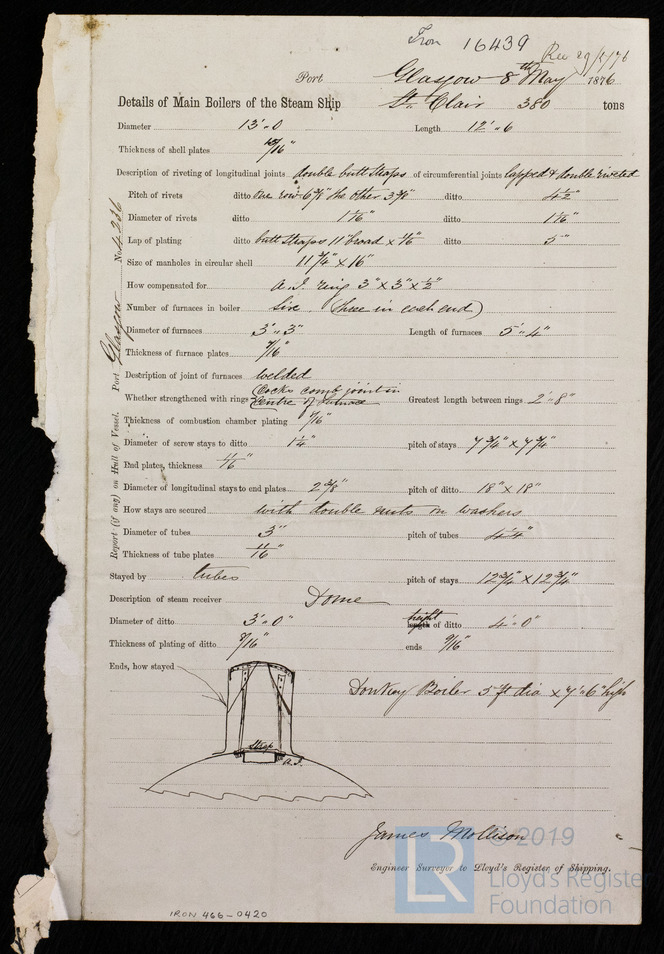 Iron 16439 Rec 29/5/76
Port Glasgow 8th May 1876
Details of Main Boilers of the Steam Ship St. Clair 380 tons
Diameter 13'.0 Length 12'.6
Thickness of shell plates 13/16"
Description of riveting of longitudinal joints double butt straps of circumferential joints lapped & double riveted
Pitch of rivets ditto One row 6 3/4" the other 3 3/8" ditto 4 1/2"
Diameter of rivets ditto 1 1/16" ditto 1 1/16"
Lap of plating ditto butt straps 11" broad x 11/16" ditto 5"
Size of manholes in circular shell 11 3/4" x 16"
How compensated for A.I. ring 3" x 3" x 1/2"
Number of furnaces in boiler Six (three in each end)
Diameter of furnaces 3'.3" Length of furnaces 5'.4"
Thickness of furnace plates 7/16"
Description of joint of furnaces welded
Whether strengthened with rings Cocks comb joint in centre of furnace Greatest length between rings 2'.8"
Thickness of combustion chamber plating 7/16"
Diameter of screw stays to ditto 1 1/4" pitch of stays 7 3/4" x 7 3/4"
End plates, thickness 11/16"
Diameter of longitudinal stays to end plates 2 3/8" pitch of ditto 18" x 18"
How stays are secured with double nuts on washers
Diameter of tubes 3" pitch of tubes 4 1/4"
Thickness of tube plates 11/16"
Stayed by tubes pitch of stays 12 3/4" x 12 3/4"
Description of steam receiver Dome
Diameter of ditto 3'.0" height length of ditto 4'.0"
Thickness of plating of ditto 9/16" ends 9/16"
Ends, how stayed
Donkey Boiler 5 ft dia x 7'.6" high
Strap
A.I.
James Mollison
Engineer Surveyor to Lloyd's Register of Shipping.
Report (if any) on Hull of Vessel. Port Glasgow No. 4236
IRON 466-0420
LR © 2019
Lloyd's Register
Foundation